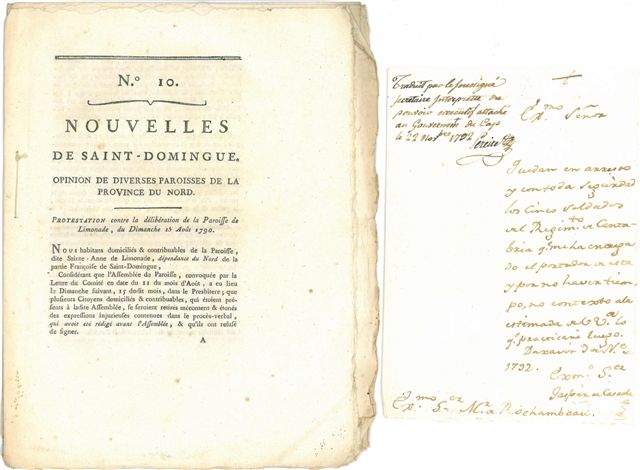 N.° 10.
NOUVELLES
DE SAINT-DOMINGUE.
OPINION DE DIVERSES PAROISSES DE LA
PROVINCE DU NORD.
PROTESTATION contre la délibération de la Paroisse de
Limonade, du Dimanche 15 Août 1790.
NOUS habitans domiciliés & contribuables de la Paroisse,
dite Sainte-Anne de Limonade, dépendance du Nord de la
partie Françoise de Saint-Domingue,
Considérant que l'Assemblée de Paroisse, convoquée par la
Lettre du Comité en date du 11 du mois d'Août, a eu lieu
le Dimanche suivant, 15 dudit mois, dans le Presbitere; que
plusieurs Citoyens domiciliés & contribuables, qui étoient pré-
sents à ladite Assemblée, se seroient retirés mécontents & étonés
des expressions injurieuses contenues dans le procès-verbal,
qui avoit été rédigé avant l'Assemblée, & qu'ils ont refusé
de signer.
A
Traduit par le soussigné
secretaire interprete du
pouvoir executif attaché
au Gouvernement du Cap
le 22 Nov.bre 1792
Ex.mo Señor
Quedan en arresto
y con toda seguridad
los Cinco Soldados
del Regim.to de Canta-
bria q.e me ha entrega-
do el portador de esta
y por no haver tiem-
po, no contexto a la
estimada de V.E.a
q.e practicaré luego.
Daxavon 3 de N.e
1792.
Exmo. S.or
Gaspar de Casasola
Ex.mo S.or M.r de Rochambeau.